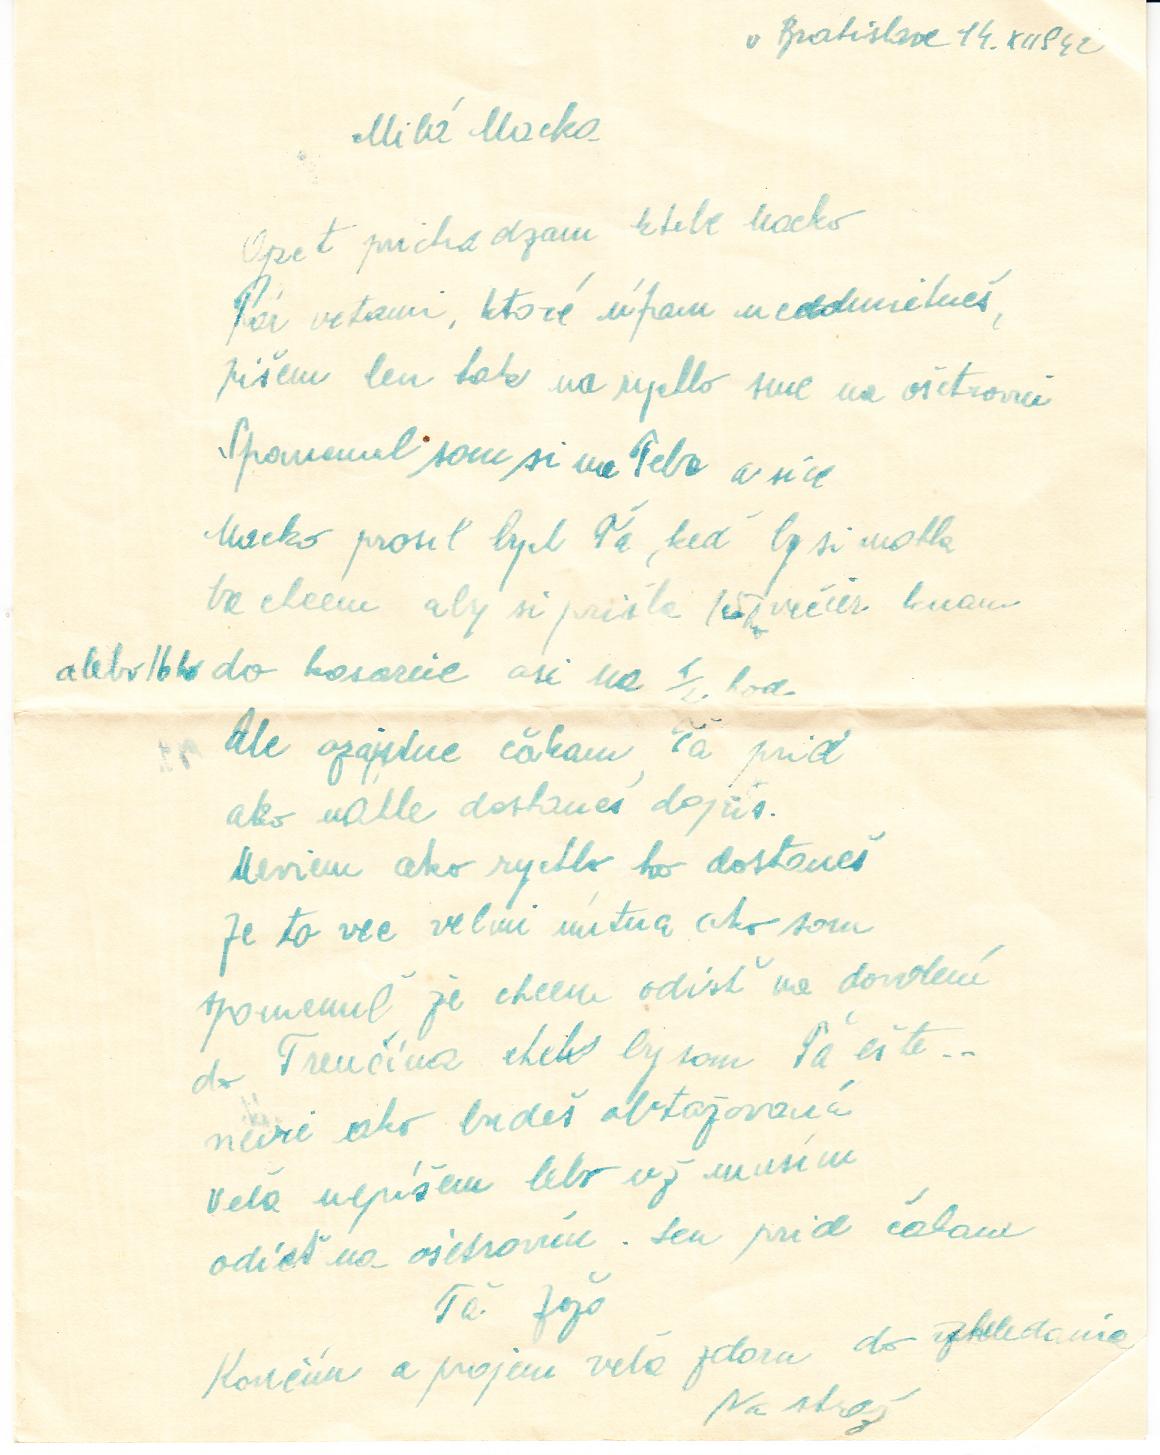 v Bratislave 14. XII 942
Milá Macka
Opet prichadzam ktebe Macko
Pár vetami, ktoré úfam neodmietneš,
píšem len tak na rychlo sme na ošetrovni
Spomenul som si na Teba a síce
Macko prosil bych Ťa, keď by si mohla
ta chcem aby si prišla večer knam
alebo 16ho do kasarne asi na hod.
Ale ozajstne čákam Ťa príď
ako náhle dostaneš dopis.
Neviem ako rychlo ho dostaneš
Je to vec velmi nútna ako som
spomenul že chcem odísť na dovolenú
do Trenčína chcel by som Ťa ešte --
ako budeš obťažovaná
Veľa nepíšem lebo už musím
odísť na ošetrovňu. Len príď čákam
Ťa Jožo
Končím a prajem veľa zdaru do
Na stráž